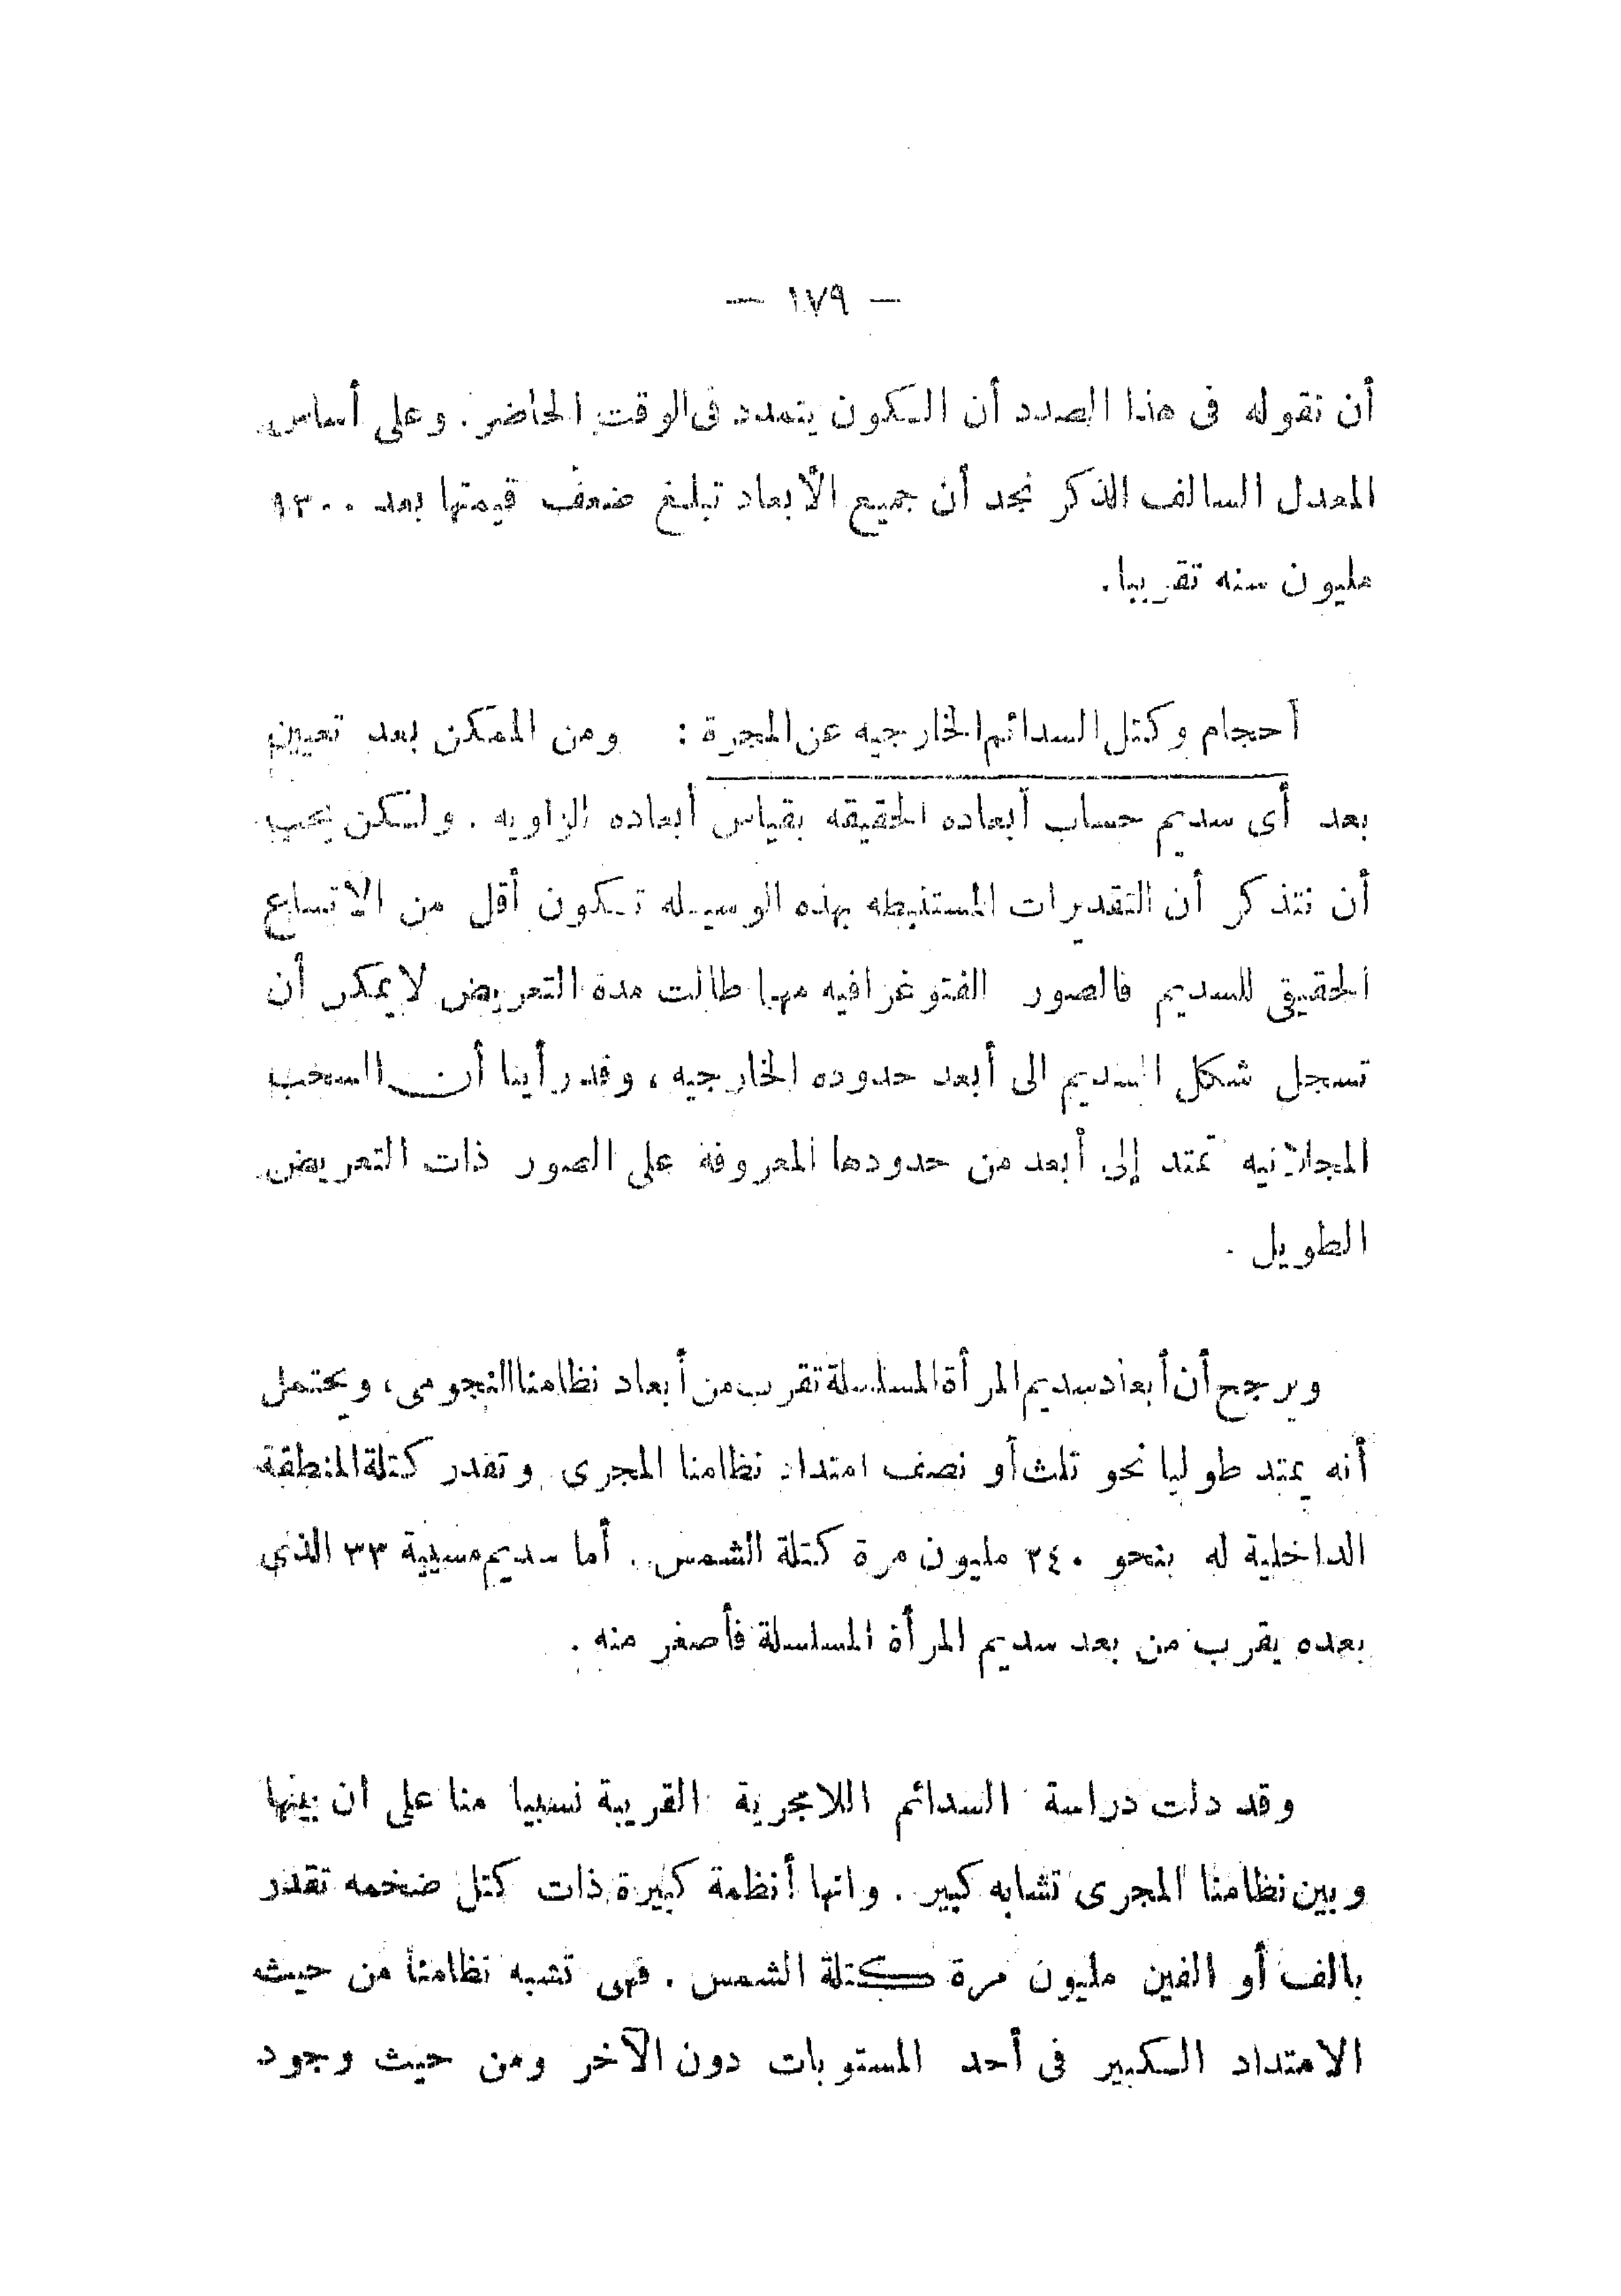 — ١٧٩ —
أن نقوله فى هذا الصدد أن الكون يتمدد فى الوقت الحاضر . وعلى أساس
المعدل السالف الذكر نجد أن جميع الأبعاد تبلغ ضعف قيمتها بعد ١٣٠٠
مليون سنه تقريبا .
أحجام وكتل السدائم الخارجيه عن المجرة : ومن الممكن بعد تعيين
بعد أى سديم حساب أبعاده الحقيقه بقياس أبعاده الزاويه . ولكن يجب
أن نتذكر أن التقديرات المستنبطه بهذه الوسيله تكون أقل من الاتساع
الحقيقى للسديم فالصور الفتوغرافيه مهما طالت مدة التعريض لا يمكن أن
تسجل شكل السديم الى أبعد حدوده الخارجيه ، وقد رأينا أن السحب
المجلانيه تمتد إلى أبعد من حدودها المعروفة على الصور ذات التعريض
الطويل .
ويرجح أن أبعاد سديم المرأة المسلسلة تقرب من أبعاد نظامنا النجومى ، ويحتمل
أنه يمتد طوليا نحو ثلث أو نصف امتداد نظامنا المجرى وتقدر كتلة المنطقة
الداخلية له بنحو ٣٤٠ مليون مرة كتلة الشمس . أما سديم مسيية ٣٣ الذى
بعده يقرب من بعد سديم المرأة المسلسلة فأصغر منه .
وقد دلت دراسة السدائم اللامجرية القريبة نسبيا منا على ان بينها
وبين نظامنا المجرى تشابه كبير . وانها أنظمة كبيرة ذات كتل ضخمه تقدر
بالف أو الفين مليون مرة كتلة الشمس . فهى تشبه نظامنا من حيث
الامتداد الكبير فى أحد المستويات دون الآخر ومن حيث وجود